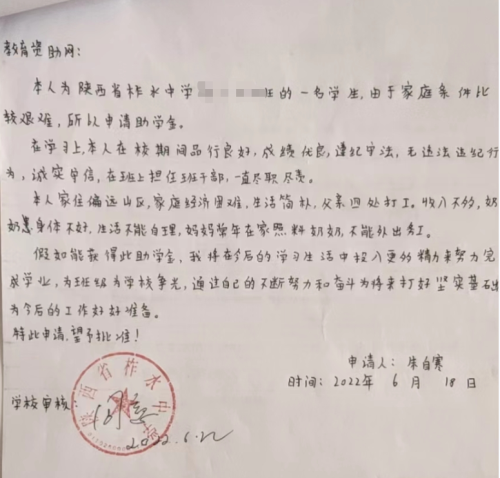 教育资助网:
本人为陕西省柞水中学 班的一名学生,由于家庭条件比
较艰难,所以申请助学金。
在学习上,本人在校期间品行良好,成绩优良,遵纪守法,无违法违纪行
为,诚实守信,在班上担任班干部,一直尽职尽责。
本人家住偏远山区,家庭经济困难,生活简朴,父亲四处打工。收入不多,奶
奶身体不好,生活不能自理,妈妈常年在家照料奶奶,不能外出务工。
假如能获得此助学金,我将在今后的学习生活中投入更的精力来努力完
成学业,为班级为学校争光,通过自己的不断努力和奋斗为将来打好坚实基础
为今后的工作好好准备。
特此申请,望予批准!
申请人: 朱自寒
时间: 2022年 6月 18日
学校审核:
陕西省柞水中学
2022.6.22